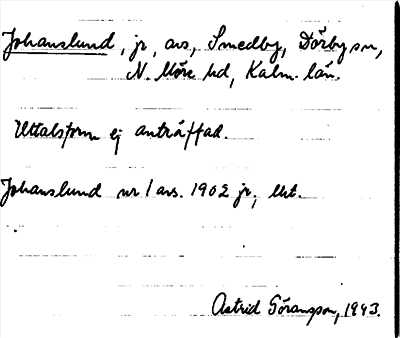 Johanslund, jr, avs, Smedby, Dörby sn,
N. Möre hd, Kalm. län.
Uttalsform ej anträffad.
Johanslund nr 1 avs. 1902 jr, Ukt.
Astrid Göransson, 1943.